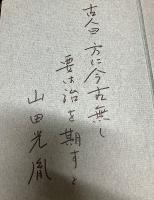 古人曰 方に今古無し
要は治を期すと
山田光胤